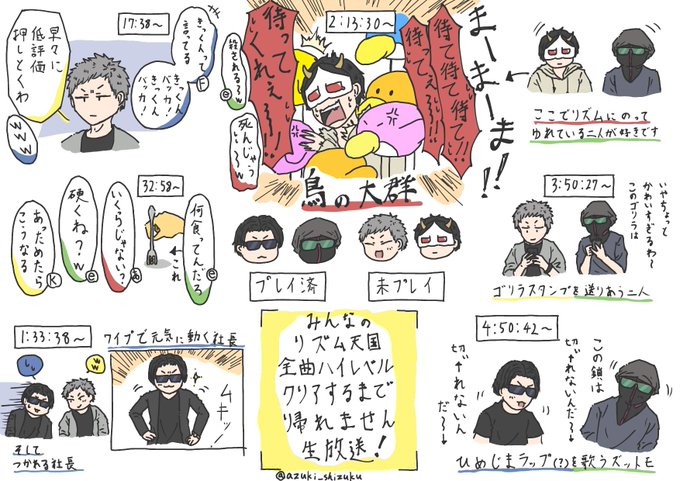 17:38〜
早々に
低評価
押しとくわ
きっくんって
言ってる
きっくんバッカ!
きっくん
バッカ!
www
2:13:30〜
殺される〜w
死んじゃう〜〜w
待って
くれぇ〜!!
待て待て待て!!
待ってぇ〜!!
まーまーま!!
鳥の大群
ここでリズムにのって
ゆれている二人が好きです
32:59〜
何食ってんだろ
←これ
いくらじゃない?
硬くね?w
あっためたら
こうなる
K
プレイ済
未プレイ
3:50:27〜
いやちょって
かわいすぎるわ〜
このゴリラは
ゴリラスタンプを送りあう二人
1:33:38〜
w
ワイプで元気に動く社長
ムキッ
そして
つかれる社長
みんなの
リズム天国
全曲ハイレベル
クリアするまで
帰れません
生放送!
@azuki_shizuku
4:50:42〜
この鎖は
切れないんだ〜↓
切れないん
だ〜↓
ひめじまラップ(?)を歌うズットモ